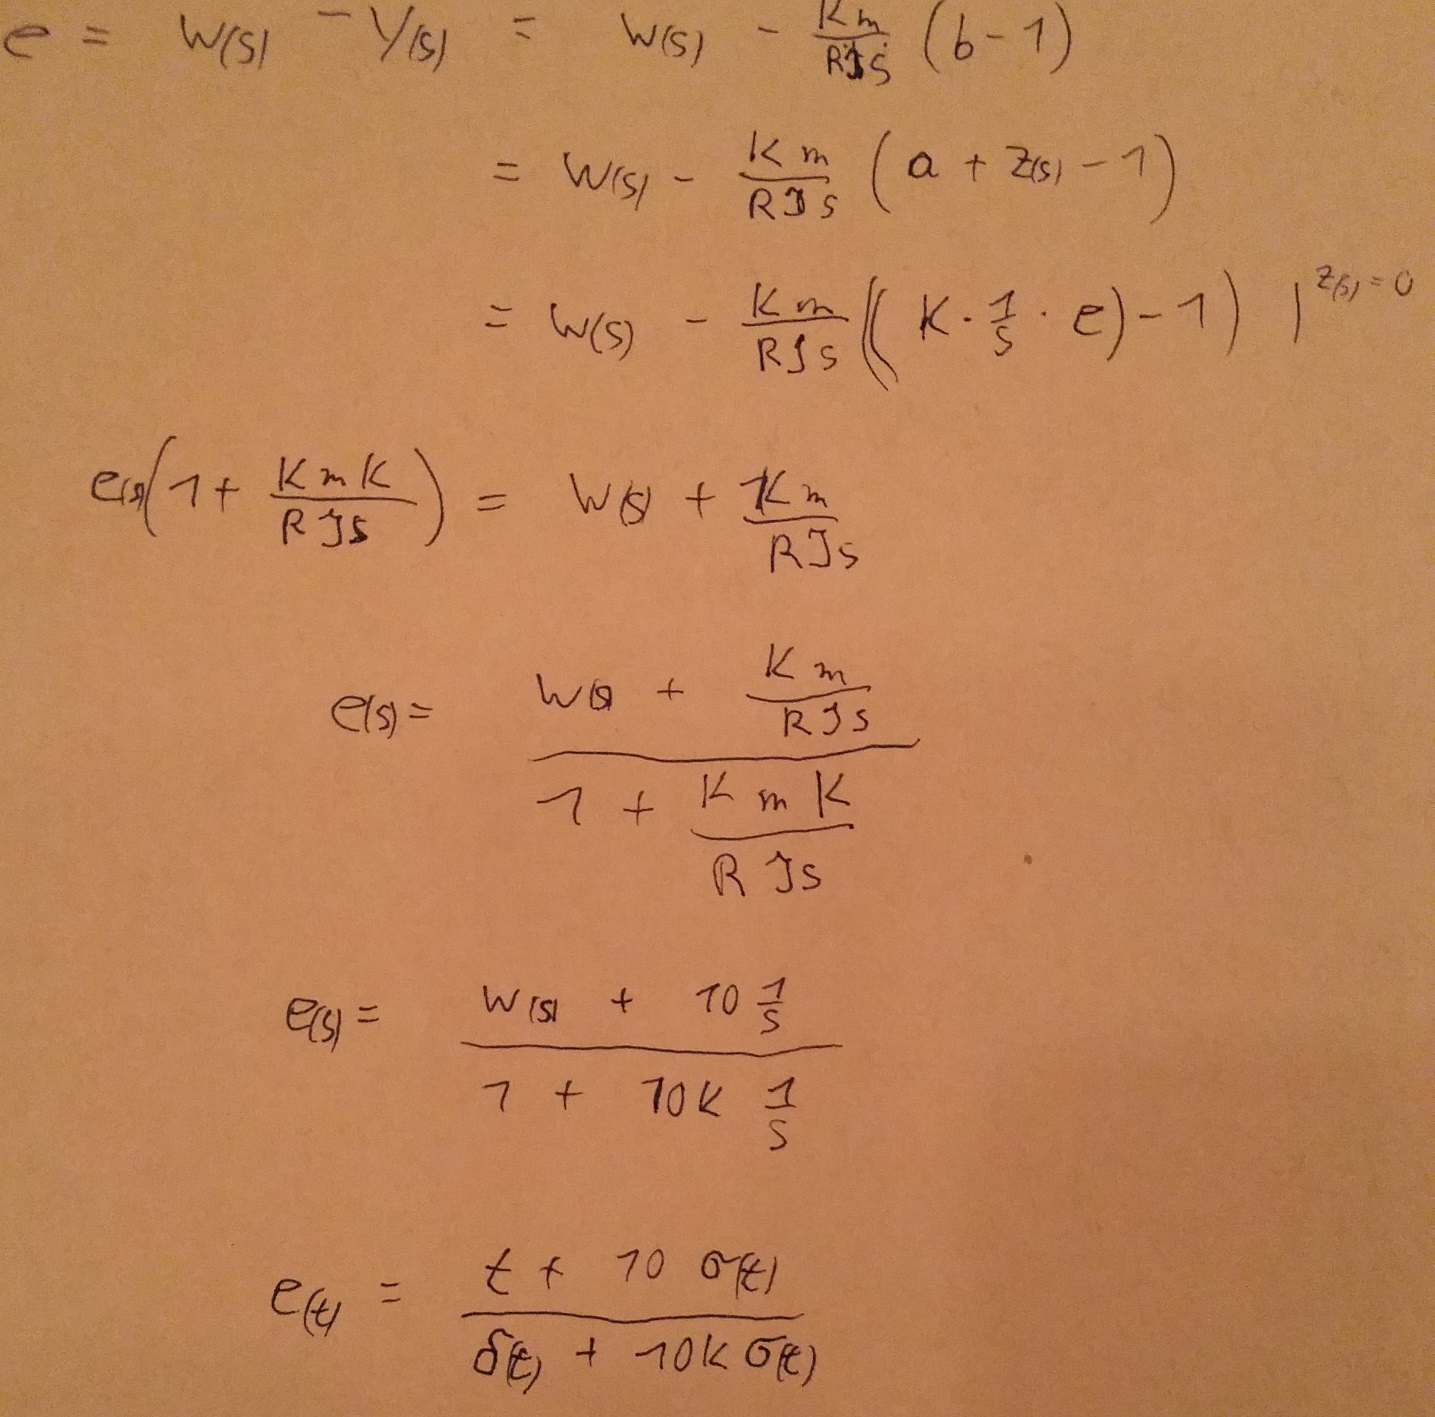 e = W(s) - Y(s) = W(s) - Km/RJs (b-1)
= W(s) - Km/RJs (a + Z(s) - 1)
= W(s) - Km/RJs ((K · 1/s · e) - 1) | Z(s) = 0
e(s)(1 + KmK/RJs) = W(s) + Km/RJs
e(s) = (W(s) + Km/RJs) / (1 + KmK/RJs)
e(s) = (W(s) + 10 1/s) / (1 + 10K 1/s)
e(t) = (t + 10 σ(t)) / (δ(t) + 10K σ(t))